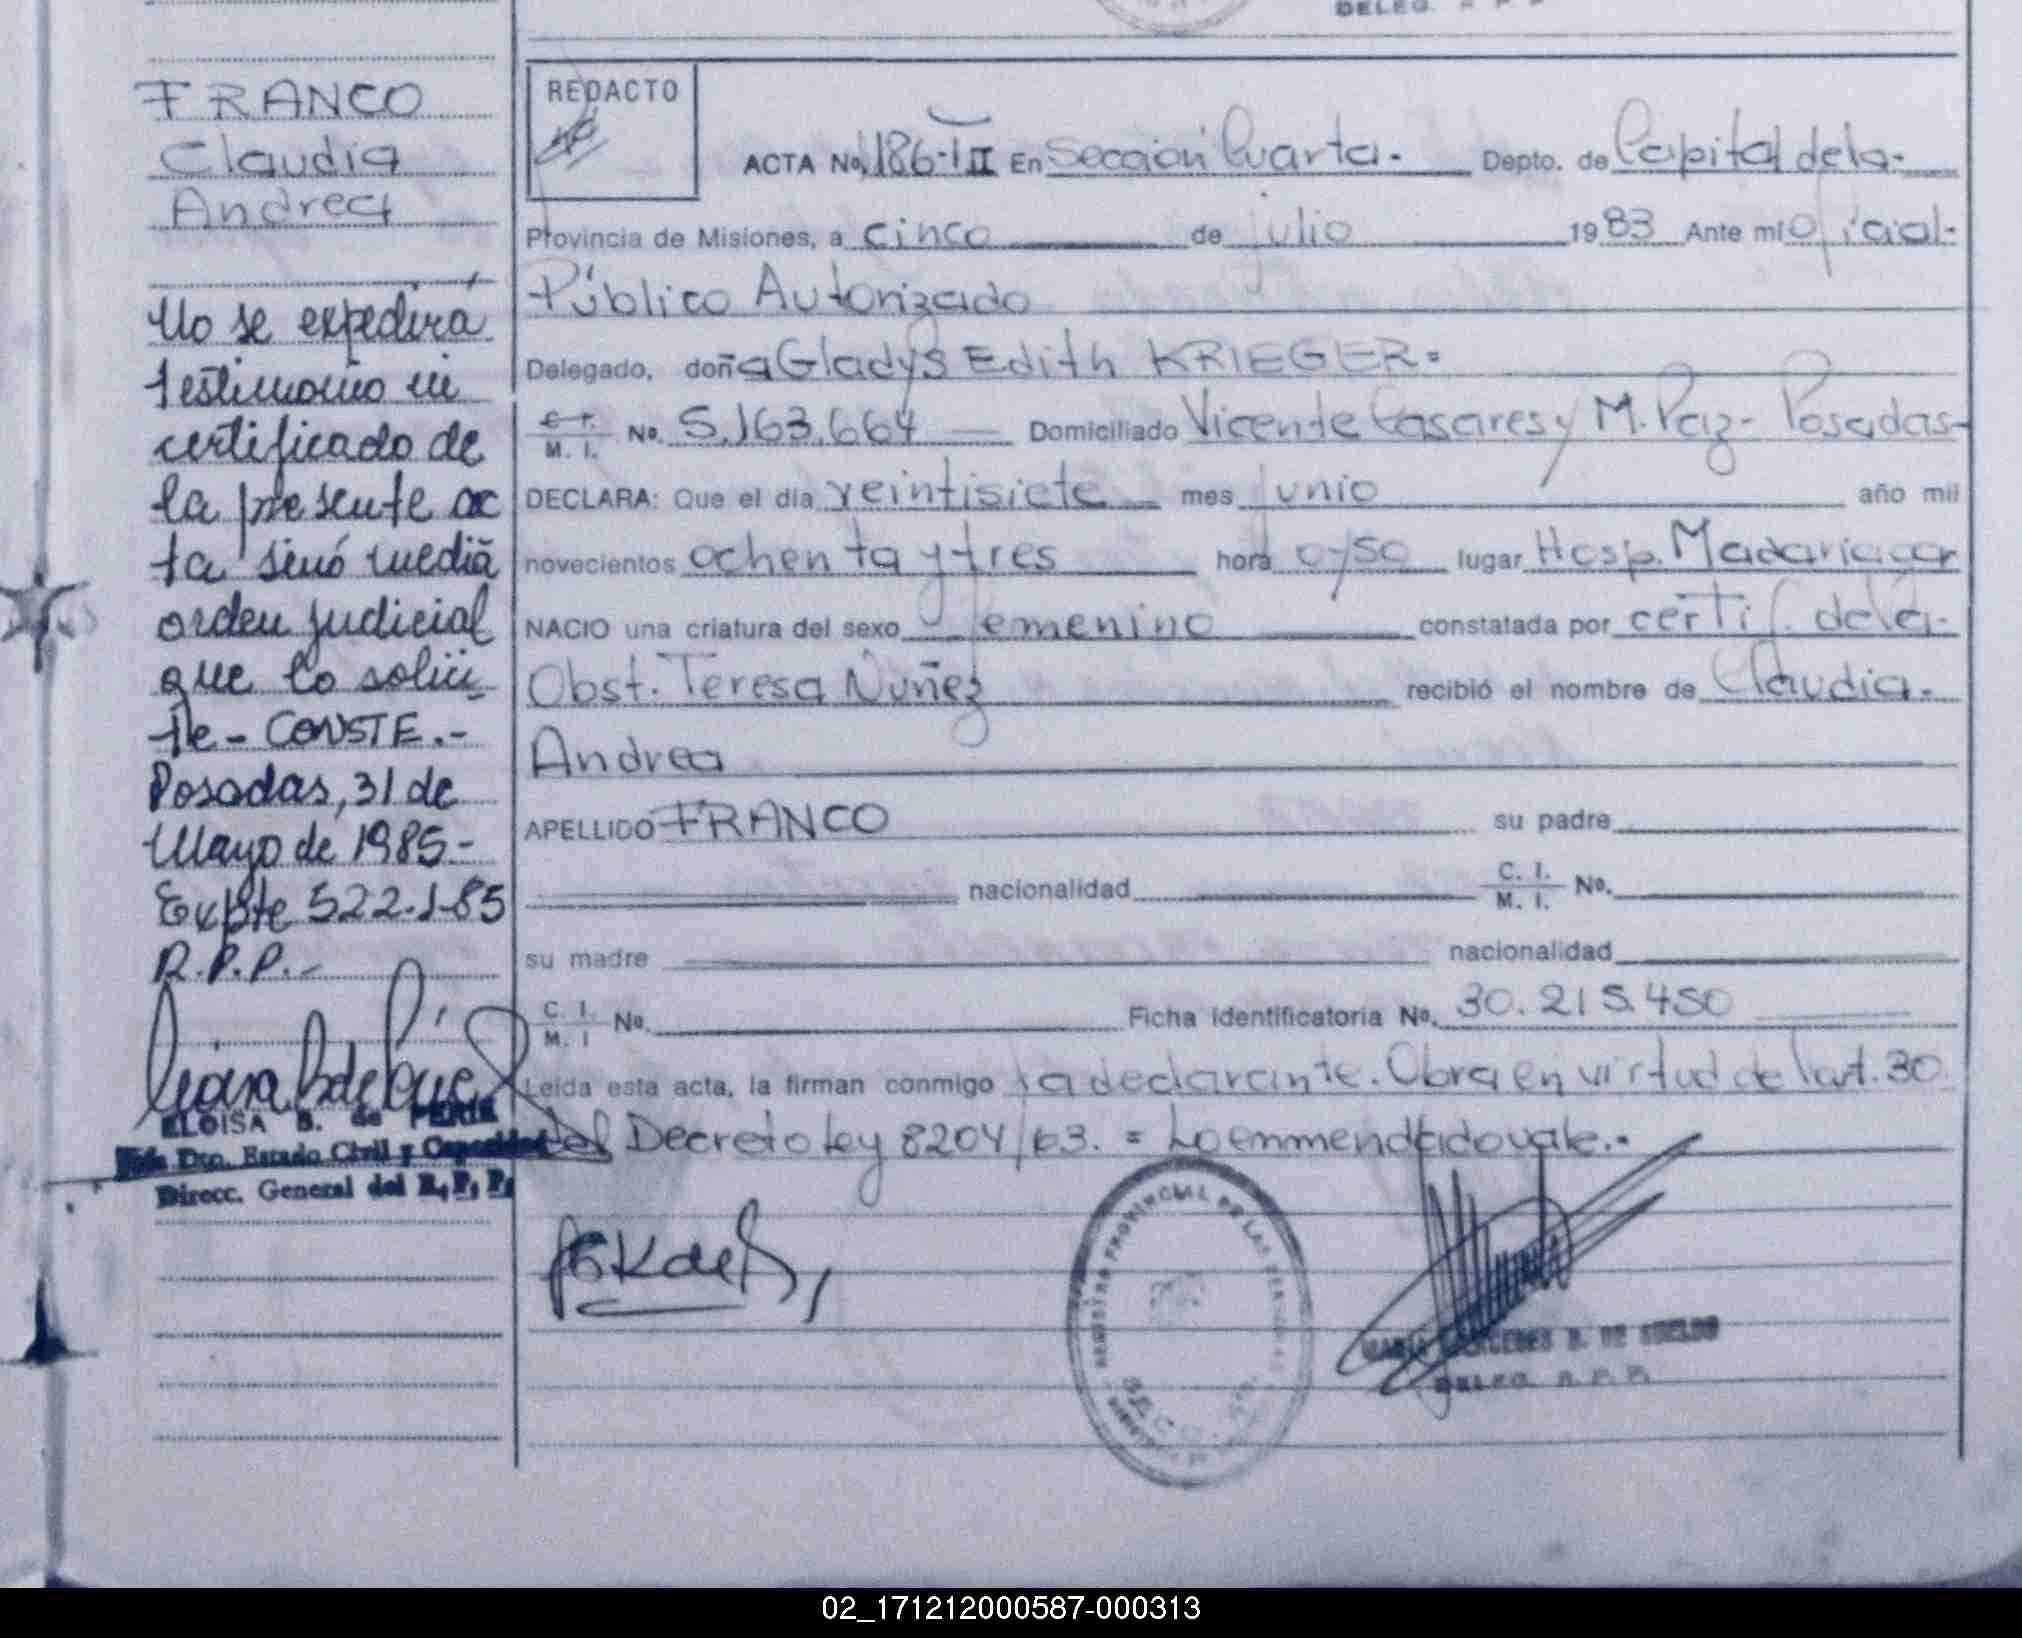 DELEG. R P P
FRANCO
Claudia
Andrea
No se expedirá
testimonio ni
certificado de
la presente ac
ta sinó media
orden judicial
que lo solici
te - CONSTE.-
Posadas, 31 de
Mayo de 1985-
Expte 522-J-85
R.P.P.-
ELOISA B. de
Dto. Estado Civil y Capacidad
Direcc. General del R, P, P,
REDACTO
ACTA No. 186-III En Sección Cuarta. Depto. de Capital de la-
Provincia de Misiones, a cinco de julio 1983 Ante mí Oficial-
Público Autorizado
Delegado, doña Gladys Edith KRIEGER=
C. I. / M. I. No. 5.163.664 Domiciliado Vicente Casares y M. Paz- Posadas-
DECLARA: Que el día veintisiete mes junio año mil
novecientos ochenta y tres hora 0/50 lugar Hosp. Madariaga
NACIO una criatura del sexo femenino constatada por certif. de la-
Obst. Teresa Nuñez recibió el nombre de Claudia-
Andrea
APELLIDO FRANCO su padre
nacionalidad C. I. / M. I. No.
su madre nacionalidad
C. I. / M. I No. Ficha identificatoria No. 30.215.450
Leída esta acta, la firman conmigo la declarante. Obra en virtud del art. 30
del Decreto Ley 8204/63. = Lo emmendado vale.-
REGISTRO PROVINCIAL DE LAS PERSONAS
MARIA MERCEDES B. DE SUELDO
DELEG. R. P. P.
02_171212000587-000313